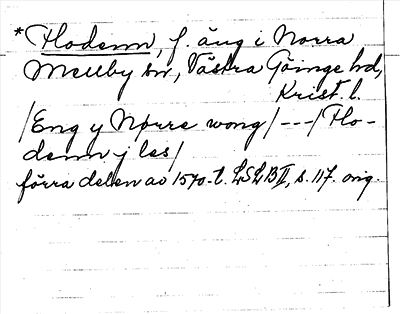 *Flodenn, f. äng i Norra
Mellby sn, Västra Göinge hd,
Krist. l.
/Eng y Nørre wong/ --- / Flo-
denn j les/
förra delen av 1570-t. LSLB II, s. 117. orig.